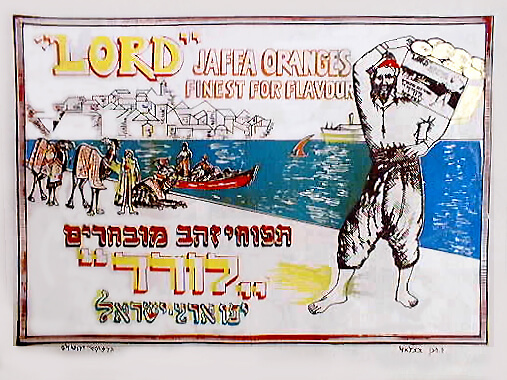 "LORD"
JAFFA ORANGES
FINEST FOR FLAVOUR
LORD
תפוחי זהב מובחרים
"לורד"
יפו ארץ-ישראל